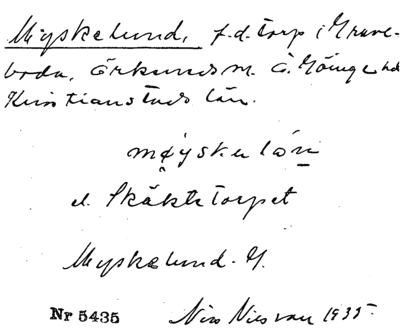 Myskelund, f.d. torp i Grave-
boda, Örkeneds sn. Ö. Göinge hd
Kristianstads län.
møyskelón
el. Skäktetorpet
Myskelund. G.
Nr 5435 Nils Nilsson 1935.